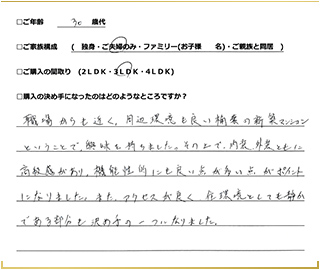 □ご年齢 30 歳代
□ご家族構成 ( 独身・ご夫婦のみ・ファミリー(お子様 名)・ご親族と同居 )
□ご購入の間取り (2LDK・3LDK・4LDK)
□購入の決め手になったのはどのようなところですか?
職場からも近く、周辺環境も良い 新築マンション
ということで、興味を持ちました。その上で、内装、外装ともに
高級感があり、機能性的にも良い点が多い点がポイント
になりました。また、アクセスが良く、住環境としても静か
である部分も決め手の一つになりました。